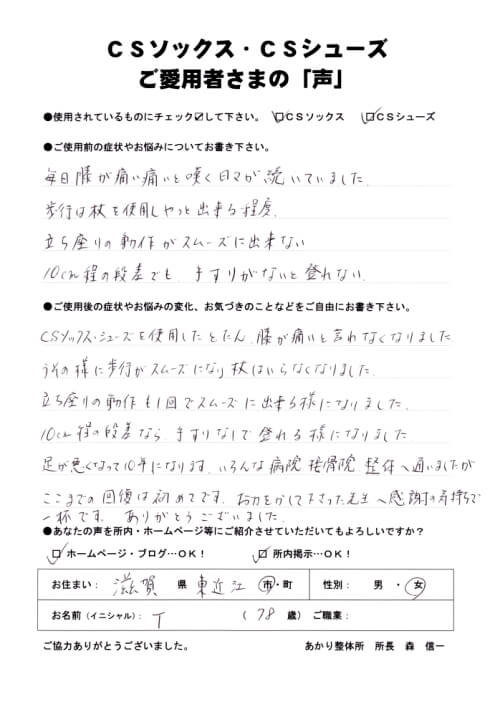 CSソックス・CSシューズ
ご愛用者さまの「声」
●使用されているものにチェック☑して下さい。 ☑CSソックス ☑CSシューズ
●ご使用前の症状やお悩みについてお書き下さい。
毎日膝が痛い痛いと嘆く日々が続いていました。
歩行は杖を使用しやっと出来る程度。
立ち座りの動作がスムーズに出来ない
10cm程の段差でも、手すりがないと登れない。
●ご使用後の症状やお悩みの変化、お気づきのことなどをご自由にお書き下さい。
CSソックス・シューズを使用したとたん、膝が痛いと言わなくなりました
うその様に歩行がスムーズになり杖はいらなくなりました。
立ち座りの動作も1回でスムーズに出来る様になりました。
10cm程の段差なら手すりなしで登れる様になりました
足が悪くなって10年になります。いろんな病院、接骨院、整体へ通いましたが
ここまでの回復は初めてです。お力をかして下さった先生へ感謝の気持ちで
一杯です。ありがとうございました。
●あなたの声を所内・ホームページ等にご紹介させていただいてもよろしいですか？
☑ホームページ・ブログ…OK！ ☑所内掲示…OK！
お住まい： 滋賀 県 東近江 市・町 性別： 男 ・ 女
お名前（イニシャル）： T （ 78 歳） ご職業：
ご協力ありがとうございました。 あかり整体所 所長 森 信一